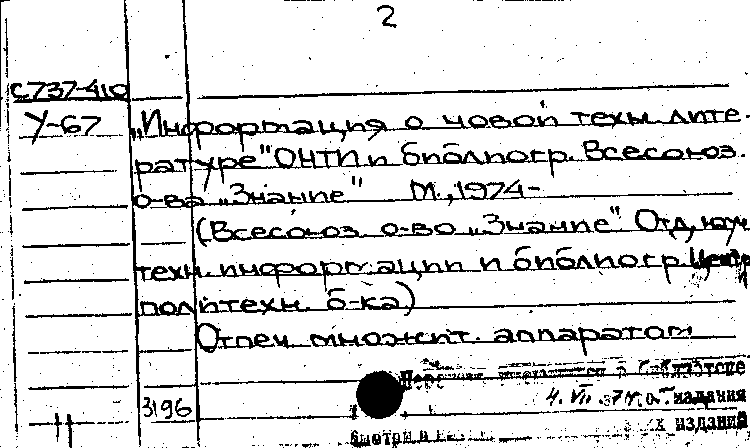 2
С737-410
У-67 „Информация о новой техн. лите-
ратуре" ОНТИ и библиогр. Всесоюз.
о-ва „Знание" М., 1974-
(Всесоюз. о-во „Знание" Отд. науч.
техн. информации и библиогр. Центр.
политехн. б-ка)
Отпеч. множит. аппаратом
в библиотеке
4. VII 1974 г. издания
3196 х издания